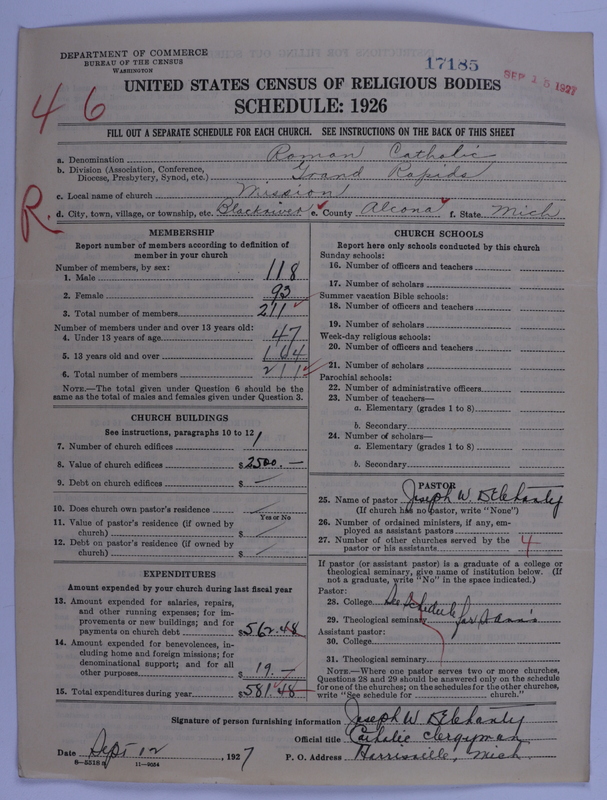 DEPARTMENT OF COMMERCE
BUREAU OF THE CENSUS
WASHINGTON
17185
SEP 15 1927
46
UNITED STATES CENSUS OF RELIGIOUS BODIES
SCHEDULE: 1926
FILL OUT A SEPARATE SCHEDULE FOR EACH CHURCH. SEE INSTRUCTIONS ON THE BACK OF THIS SHEET
a. Denomination Roman Catholic
b. Division (Association, Conference, Diocese, Presbytery, Synod, etc.) Grand Rapids
c. Local name of church Mission
R.
d. City, town, village, or township, etc. Blackriver e. County Alcona f. State Mich
MEMBERSHIP
Report number of members according to definition of
member in your church
Number of members, by sex:
1. Male 118
2. Female 93
3. Total number of members 211
Number of members under and over 13 years old:
4. Under 13 years of age 47
5. 13 years old and over 164
6. Total number of members 211
NOTE.—The total given under Question 6 should be
same as the total of males and females given under Question 3.
CHURCH BUILDINGS
See instructions, paragraphs 10 to 12
7. Number of church edifices 1
8. Value of church edifices $2500.—
9. Debt on church edifices $ —
10. Does church own pastor's residence —
Yes or No
11. Value of pastor's residence (if owned by
church) $ —
12. Debt on pastor's residence (if owned by
church) $ —
EXPENDITURES
Amount expended by your church during last fiscal year
13. Amount expended for salaries, repairs,
and other running expenses; for im-
provements or new buildings; and for
payments on church debt $562.48
14. Amount expended for benevolences, in-
cluding home and foreign missions; for
denominational support; and for all
other purposes $ 19.—
15. Total expenditures during year $581.48
CHURCH SCHOOLS
Report here only schools conducted by this church
Sunday schools:
16. Number of officers and teachers
17. Number of scholars
Summer vacation Bible schools:
18. Number of officers and teachers
19. Number of scholars
Week-day religious schools:
20. Number of officers and teachers
21. Number of scholars
Parochial schools:
22. Number of administrative officers
23. Number of teachers—
a. Elementary (grades 1 to 8)
b. Secondary
24. Number of scholars—
a. Elementary (grades 1 to 8)
b. Secondary
PASTOR
25. Name of pastor Joseph W. Delehanty
(If church has no pastor, write "None")
26. Number of ordained ministers, if any, em-
ployed as assistant pastors
27. Number of other churches served by the
pastor or his assistants 4
If pastor (or assistant pastor) is a graduate of a college or
theological seminary, give name of institution below. (If
not a graduate, write "No" in the space indicated.)
Pastor:
28. College See Schedule
29. Theological seminary for
Assistant pastor:
30. College
31. Theological seminary
NOTE.—Where one pastor serves two or more churches,
Questions 28 and 29 should be answered only on the schedule
for one of the churches; on the schedules for the other churches,
write "See schedule for church."
Signature of person furnishing information Joseph W Delehanty
Official title Catholic Clergyman
Date Sept 12, 1927 P. O. Address Harrisville, Mich
8-5518 a 11-9054